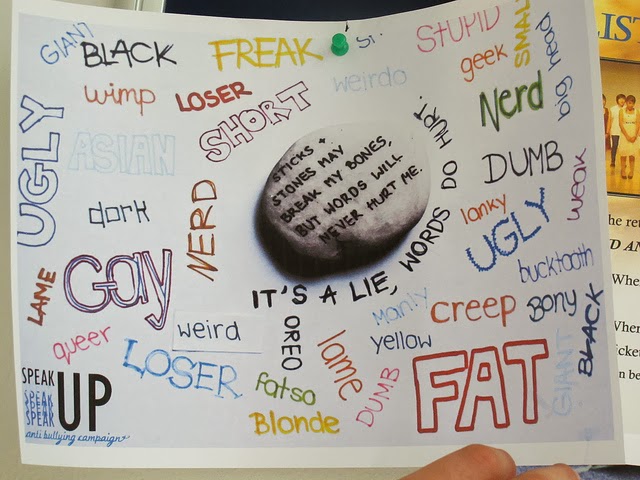 GIANT
BLACK
FREAK
STUPID
SMALL
big head
geek
weirdo
wimp
LOSER
SHORT
Nerd
UGLY
ASIAN
STICKS +
STONES MAY
BREAK MY BONES,
BUT WORDS WILL
NEVER HURT ME.
IT'S A LIE, WORDS DO HURT.
DUMB
weak
dork
NERD
lanky
UGLY
bucktooth
LAME
Gay
Manly
creep
BONY
BLACK
GIANT
queer
weird
OREO
lame
yellow
LOSER
fatso
Blonde
DUMB
FAT
SPEAK
SPEAK
SPEAK
SPEAK
UP
anti bullying campaign
IST
he ret
D AN
Whe
Wher
icke
n be